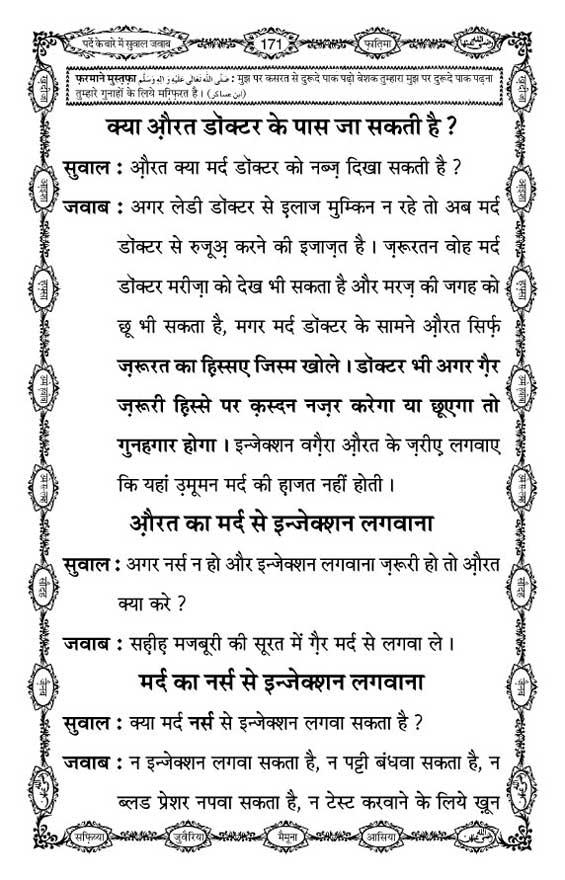 पर्दे के बारे में सुवाल जवाब
171
फ़ातिमा
फ़रमाने मुस्तफ़ा صَلَّى اللهُ تَعَالٰى عَلَيْهِ وَاٰلِهٖ وَسَلَّم : मुझ पर कसरत से दुरूदे पाक पढ़ो बेशक तुम्हारा मुझ पर दुरूदे पाक पढ़ना
तुम्हारे गुनाहों के लिये मग़्फ़िरत है । (ابن عساکر)
क्या औ़रत डॉक्टर के पास जा सकती है ?
सुवाल : औ़रत क्या मर्द डॉक्टर को नब्ज़ दिखा सकती है ?
जवाब : अगर लेडी डॉक्टर से इ़लाज मुम्किन न रहे तो अब मर्द
डॉक्टर से रुजूअ़ करने की इजाज़त है । ज़रूरतन वोह मर्द
डॉक्टर मरीज़ा को देख भी सकता है और मरज़ की जगह को
छू भी सकता है, मगर मर्द डॉक्टर के सामने औ़रत सिर्फ़
ज़रूरत का हिस्सए जिस्म खोले । डॉक्टर भी अगर ग़ैर
ज़रूरी हिस्से पर क़स्दन नज़र करेगा या छूएगा तो
गुनहगार होगा । इन्जेक्शन वग़ैरा औ़रत के ज़रीए लगवाए
कि यहां उ़मूमन मर्द की ह़ाजत नहीं होती ।
औ़रत का मर्द से इन्जेक्शन लगवाना
सुवाल : अगर नर्स न हो और इन्जेक्शन लगवाना ज़रूरी हो तो औ़रत
क्या करे ?
जवाब : सह़ीह़ मजबूरी की सूरत में ग़ैर मर्द से लगवा ले ।
मर्द का नर्स से इन्जेक्शन लगवाना
सुवाल : क्या मर्द नर्स से इन्जेक्शन लगवा सकता है ?
जवाब : न इन्जेक्शन लगवा सकता है, न पट्टी बंधवा सकता है, न
ब्लड प्रेशर नपवा सकता है, न टेस्ट करवाने के लिये ख़ून
सफ़िय्या
जुवैरिया
मैमूना
आसिया